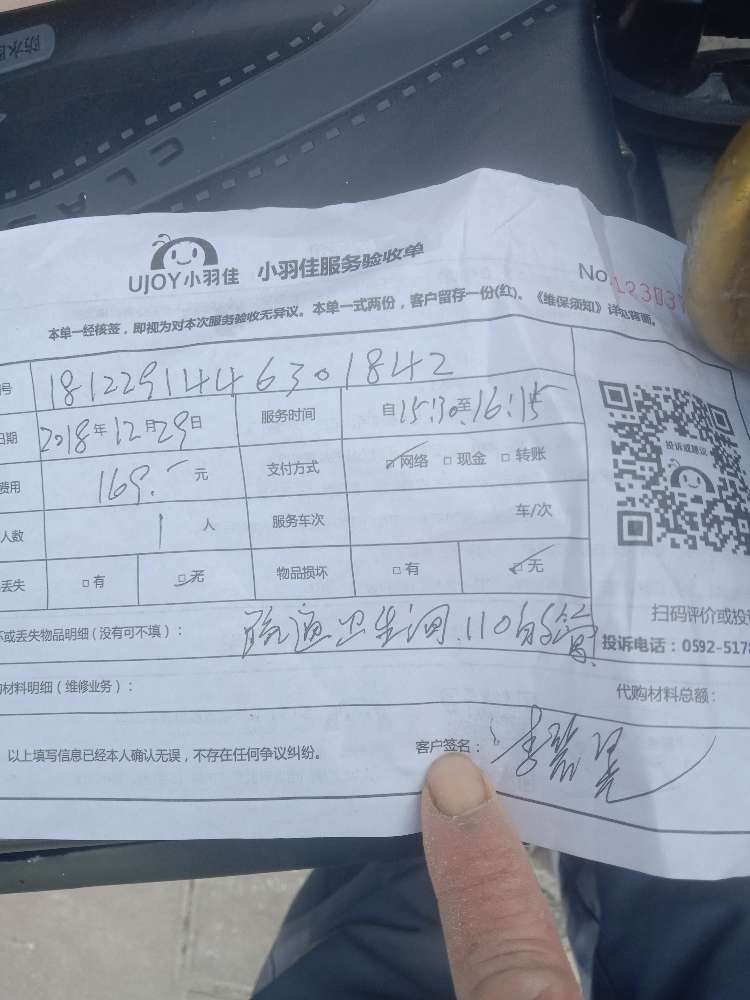 防水
CLAS
UJOY小羽佳 小羽佳服务验收单
No.123037
本单一经核签，即视为对本次服务验收无异议。本单一式两份，客户留存一份(红)。《维保须知》详见背面。
号 181229144630 1842
日期 2018年12月29日 服务时间 自15:30至16:15
费用 169.- 元 支付方式 网络 现金 转账
投诉或建议
人数 1 人 服务车次 车/次
丢失 有 无 物品损坏 有 无
扫码评价或投
坏或丢失物品明细(没有可不填)： 疏通卫生间.110的管
投诉电话：0592-5178
购材料明细(维修业务)： 代购材料总额：
以上填写信息已经本人确认无误，不存在任何争议纠纷。 客户签名：